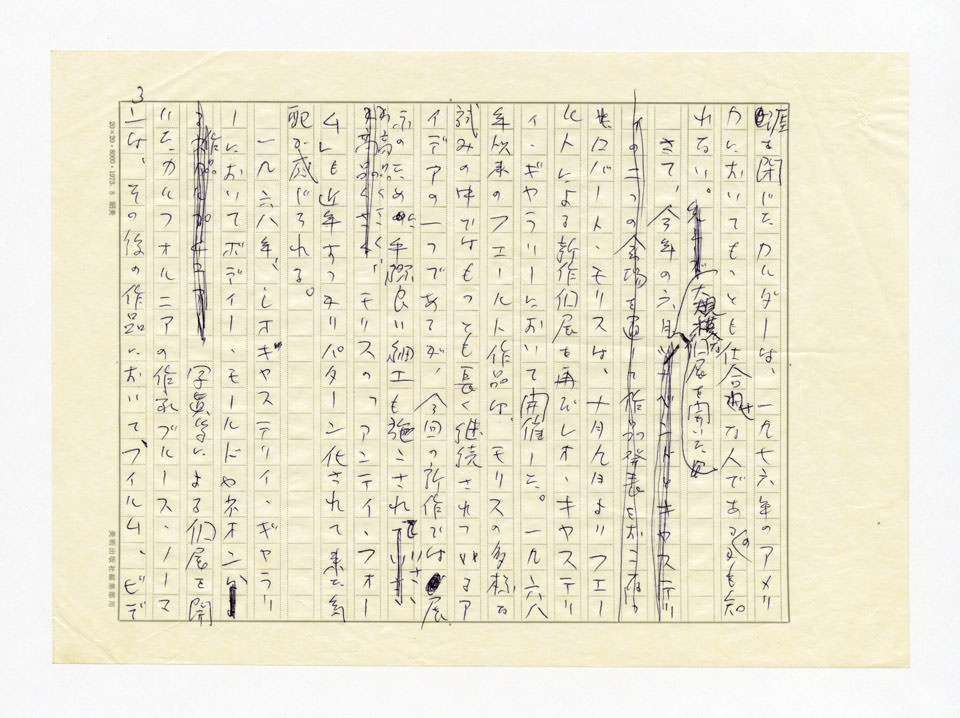 涯を閉じたカルダーは、一九七六年のアメリ
カにおいてもっとも仕合せな人であるのかも知
れない。
さて、今年の六月
大規模な個展を開いた
の二つの会場を通して作品発表をおこなっ
たロバート・モリスは、十月九日よりフエー
ルトによる新作個展を再びレオ・キャステリ
イ・ギャラリーにおいて開催した。一九六八
年以来のフエールト作品は、モリスの多様な
試みの中ではもっとも長く継続されているア
イデアの一つであるが、今回の新作では展
示のための手際良い細工も施こされていささ
か高品くさく、モリスの「アンティ・フォー
ム」も近年すっかりパターン化されて来た気
配が感じられる。
一九六八年、レオ・キャステリイ・ギャラリ
ーにおいてボディー・モールドやネオン
作品 写真等による個展を開
いたカルフォルニアの作家ブルース・ノーマ
ンは、その後の作品において、フイルム、ビデ
3
20×20・8000・1973. 8 昭東
美術出版社編集部用